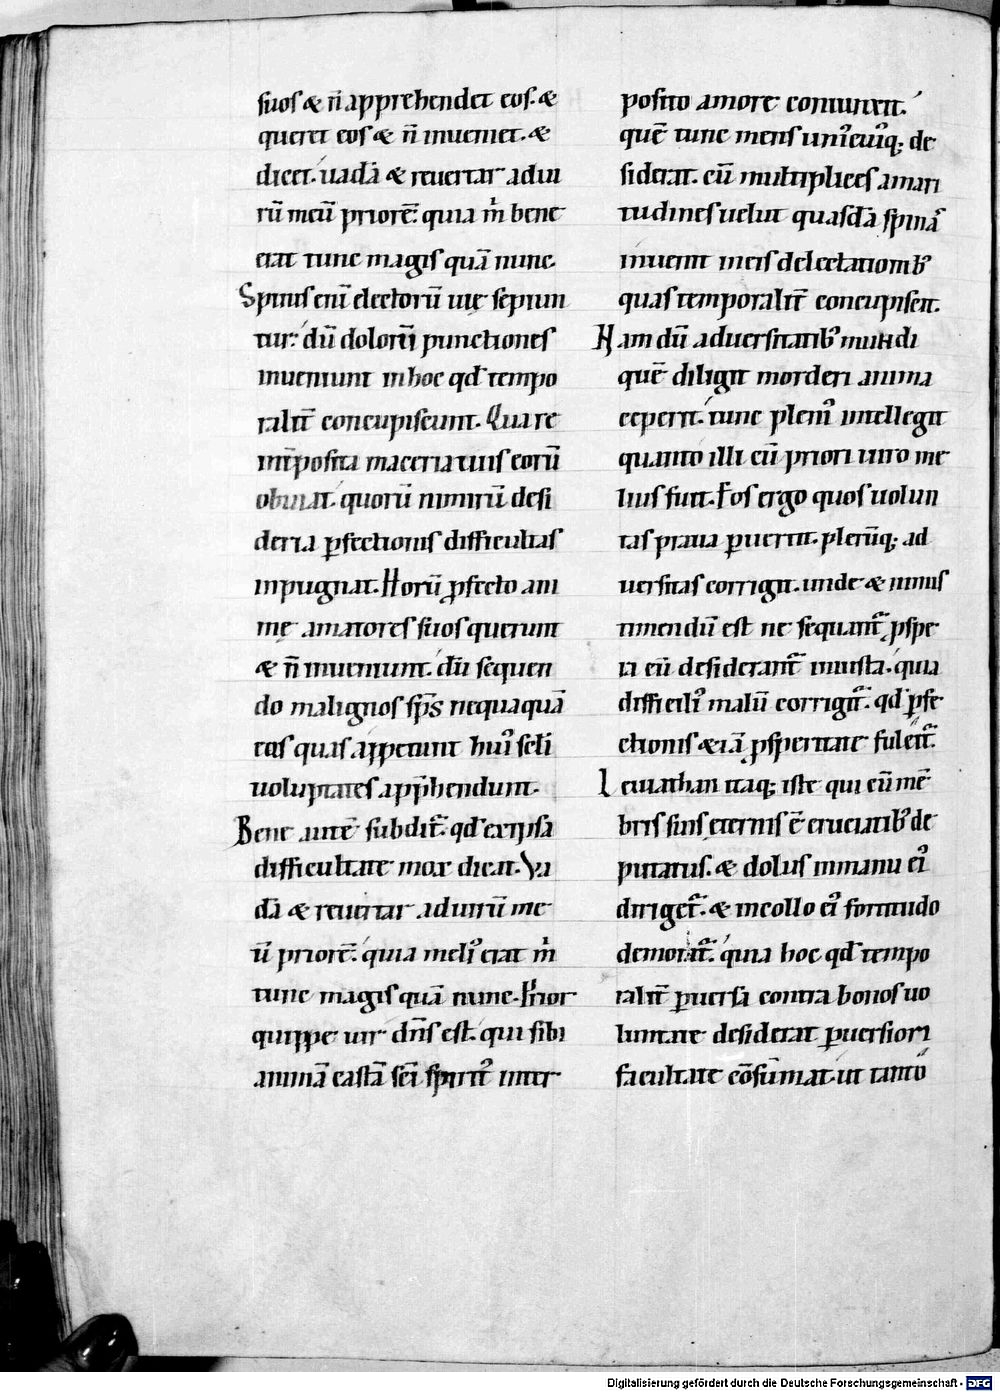 suos & n̄ apprehendet eos. &
queret eos & n̄ inueniet. &
dicet. uadā & reuertar ad ui
rū meū priorē: quia m̄ bene
erat tunc magis quā nunc.
Spinis enī electorū uię sepiun
tur: dū dolorū punctiones
inueniunt in hoc qđ tempo
ralit̄ concupiscunt. Quare
int̄posita maceria uiis eorū
obuiat. quorū nimirū desi
deria ꝑfectionis difficultas
inpugnat. Horū ꝓfecto ani
mę amatores suos querunt
& n̄ inueniunt. dū sequen
do malignos sp̄s nequaquā
eas quas appetunt huiꝰ sc̄li
uoluptates app̄hendunt.
Bene autē subdit᷑. qđ ex ipsa
difficultate mox dicat. Va
dā & reuertar ad uirū me
ū priorē. quia meliꝰ erat m̄
tunc magis quā nunc. Prior
quippe uir dn̄s est. qui sibi
animā castā sc̄i spirit᷒ inter
posito amore coniunxit.
quē tunc mens uniꝰcuiꝰq; de
siderat. cū multiplices amari
tudines uelut quasdā spinas
inuenit in eis delectationibꝰ
quas temporalit̄ concupiscit.
Nam dū aduersitatibꝰ mundi
quē diligit morderi anima
ceperit. tunc pleniꝰ intellegit
quanto illi cū priori uiro me
lius fuit. Eos ergo quos uolun
tas praua ꝑuertit. plerūq; ad
uersitas corrigit. unde & nimis
timendū est ne sequant᷑ ꝓspe
ra cū desiderant᷑ iniusta. quia
difficiliꝰ malū corrigit᷑. qđ ꝑfe
ctionis &iā ꝓsperitate fulcit᷑.
Leuiathan itaq; iste qui cū mē
bris suis ęternis ē cruciatibꝰ de
putatus. & dolus in manu eiꝰ
dirigit᷑. & in collo eiꝰ fortitudo
demorat᷑. quia hoc qđ tempo
ralit̄ ꝑuersa contra bonos uo
luntate desiderat ꝑuersiori
facultate cōsūmat. ut tanto
Digitalisierung gefördert durch die Deutsche Forschungsgemeinschaft - DFG